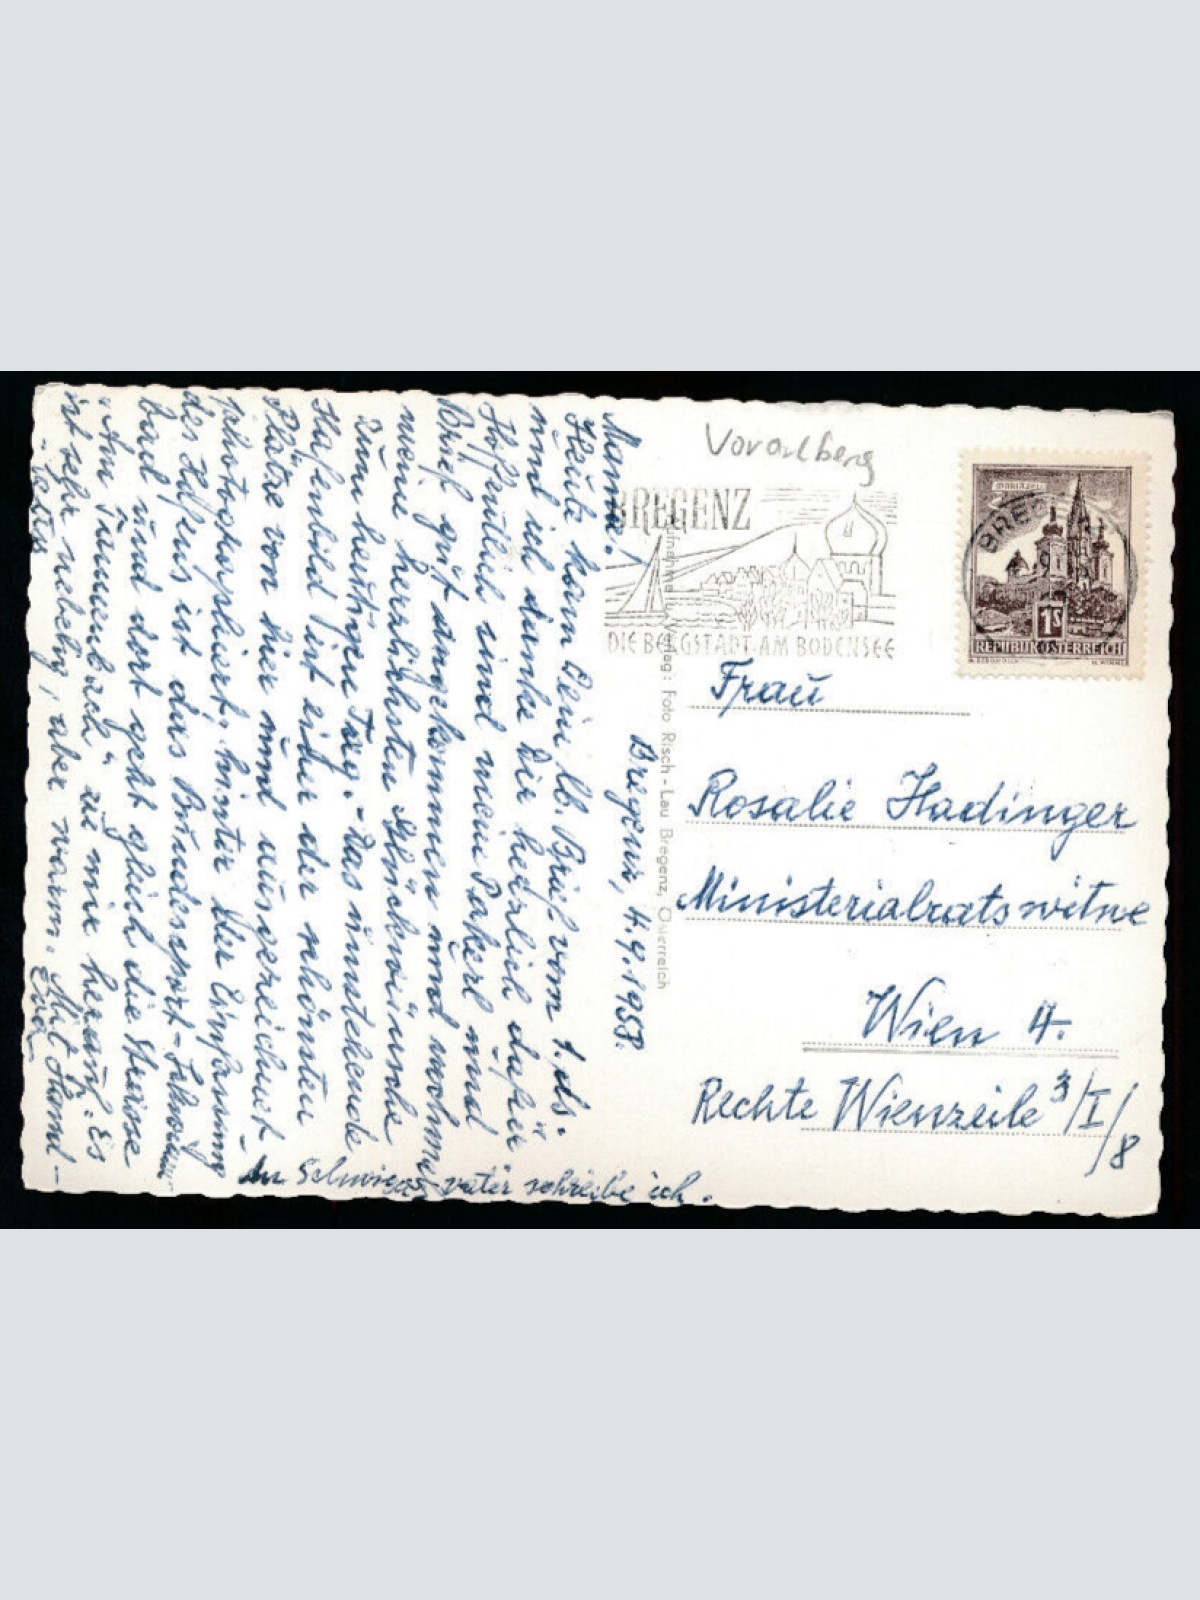 Bregenz, 4.9.1958.
Mama!
Heute kam Dein lb. Brief vom 1. ds.
und ich danke Dir herzlich dafür.
Hoffentlich sind mein Pakerl und
Brief gut angekommen und nochmals
meine herzlichsten Glückwünsche
zum heutigen Tag. - Das umstehende
Hafenbild ist einer der schönsten
Plätze von hier und ausgezeichnet
photographiert, hinter der Einfassung
des Hafens ist das Bundessport-Schwimm-
bad und dort geht gleich die Strasse
"Am Tannenbach" zu mir herauf. Es
ist sehr neblig, aber warm. Mit Handkuss
Eva
An Schwiegervater schreibe ich.
Vorarlberg
BREGENZ
DIE BERGSTADT AM BODENSEE
MARIAZELL
1S
REPUBLIK ÖSTERREICH
BREGENZ
Aufnahme u. Verlag: Foto Risch-Lau Bregenz, Österreich
Frau
Rosalie Hadinger
Ministerialratswitwe
Wien 4.
Rechte Wienzeile 3/I/8